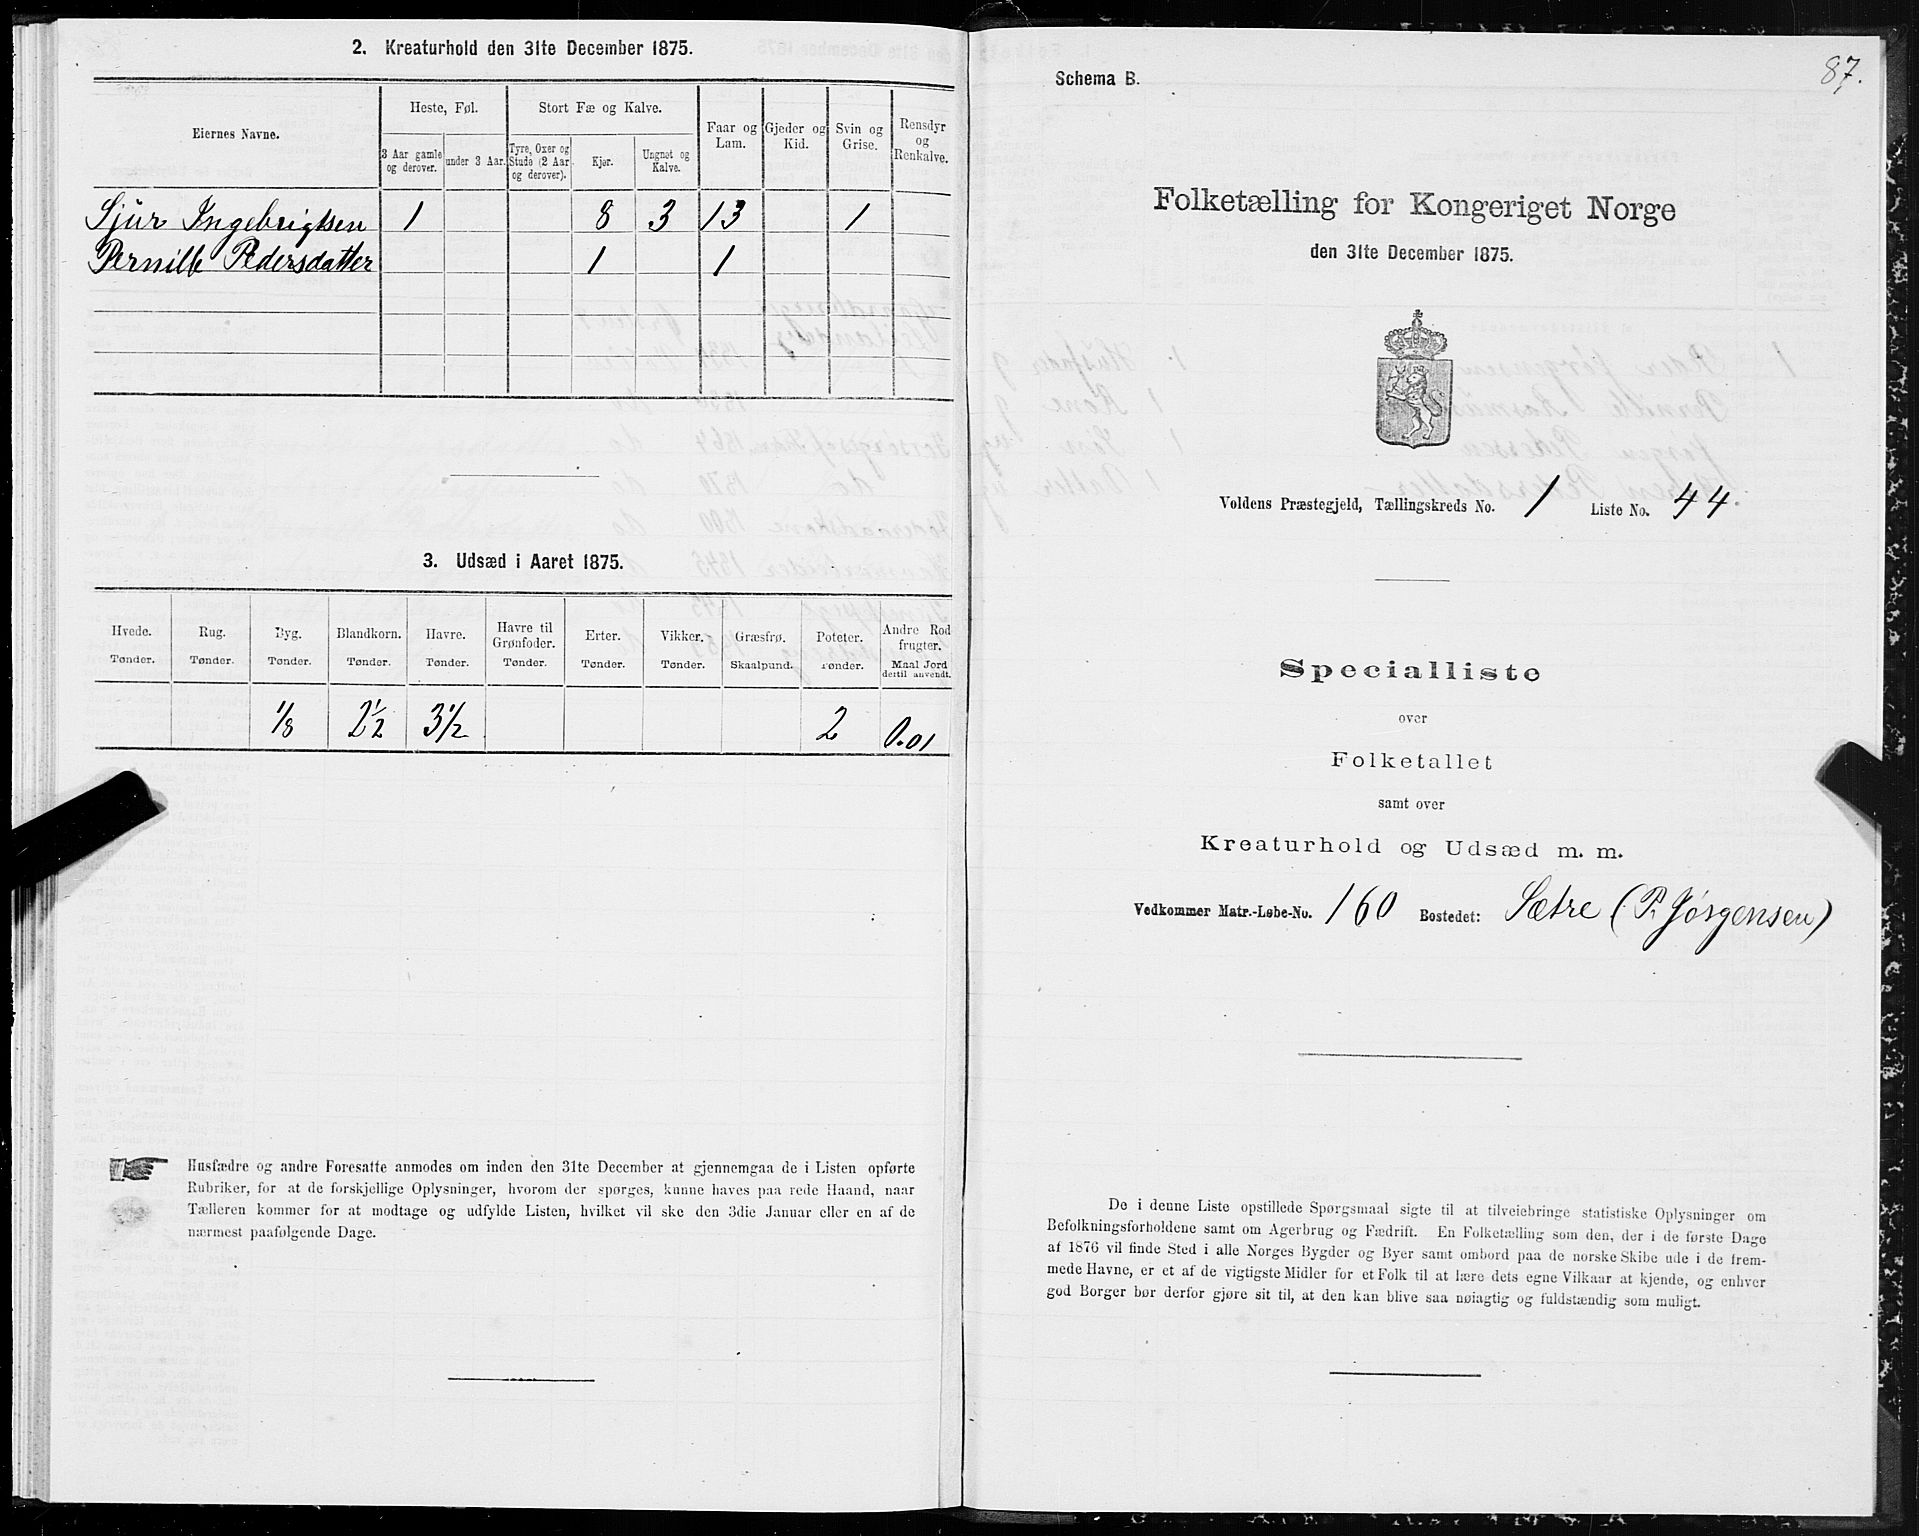 2. Kreaturhold den 31te December 1875.
Eiernes Navne.
Heste, Føl.
Stort Fæ og Kalve.
Faar og Lam.
Gjeder og Kid.
Svin og Grise.
Rensdyr og Renkalve.
3 Aar gamle og derover.
under 3 Aar.
Tyre, Oxer og Stude (2 Aar og derover).
Kjør.
Ungnøt og Kalve.
Sjur Ingebrigtsen 1 8 3 13 1
Pernille Pedersdatter 1 1
3. Udsæd i Aaret 1875.
Hvede. Rug. Byg. Blandkorn. Havre. Havre til Grønfoder. Erter. Vikker. Græsfrø. Poteter. Andre Rodfrugter.
Tønder. Tønder. Tønder. Tønder. Tønder. Tønder. Tønder. Tønder. Skaalpund. Tønder. Maal Jord dertil anvendt.
1/8 2 1/2 3 1/2 2 0.01
Husfædre og andre Foresatte anmodes om inden den 31te December at gjennemgaa de i Listen opførte
Rubriker, for at de forskjellige Oplysninger, hvorom der spørges, kunne haves paa rede Haand, naar
Tælleren kommer for at modtage og udfylde Listen, hvilket vil ske den 3die Januar eller en af de
nærmest paafølgende Dage.
87.
Schema B.
Folketælling for Kongeriget Norge
den 31te December 1875.
Voldens Præstegjeld, Tællingskreds No. 1 Liste No. 44.
Specialliste
over
Folketallet
samt over
Kreaturhold og Udsæd m. m.
Vedkommer Matr.-Løbe-No. 160 Bostedet: Sætre (P. Jørgensen)
De i denne Liste opstillede Spørgsmaal sigte til at tilveiebringe statistiske Oplysninger om
Befolkningsforholdene samt om Agerbrug og Fædrift. En Folketælling som den, der i de første Dage
af 1876 vil finde Sted i alle Norges Bygder og Byer samt ombord paa de norske Skibe ude i de frem-
mede Havne, er et af de vigtigste Midler for et Folk til at lære dets egne Vilkaar at kjende, og enhver
god Borger bør derfor gjøre sit til, at den kan blive saa nøiagtig og fuldstændig som muligt.